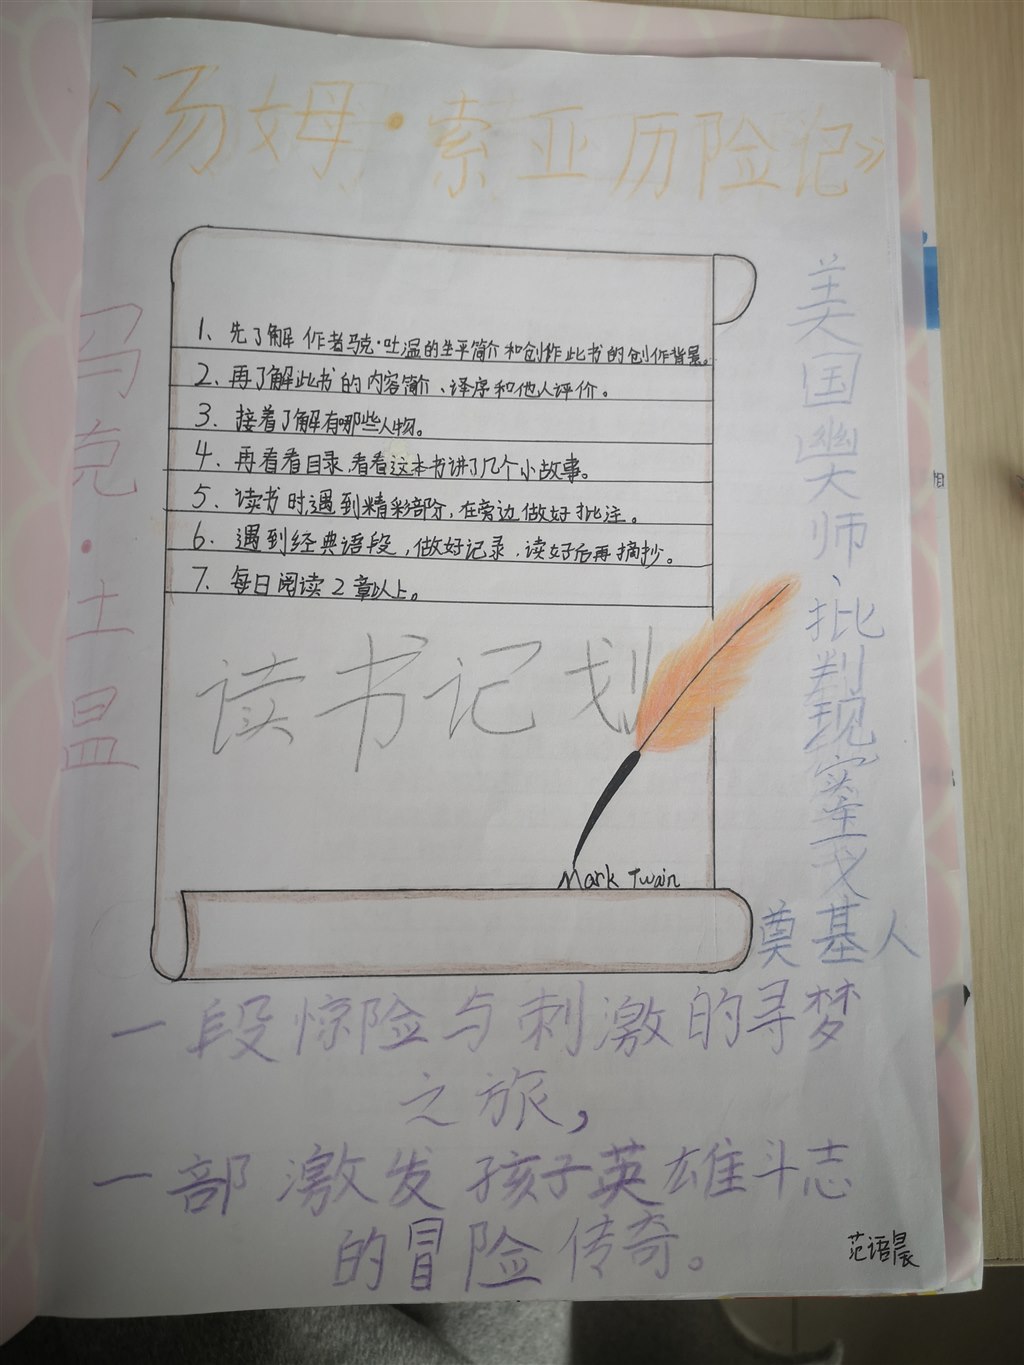 汤姆·索亚历险记》
1、先了解作者马克·吐温的生平简介和创作此书的创作背景。
2、再了解此书的内容简介、译序和他人评价。
3、接着了解有哪些人物。
4、再看看目录,看看这本书讲了几个小故事。
5、读书时遇到精彩部分,在旁边做好批注。
6、遇到经典语段,做好记录,读好后再摘抄。
7、每日阅读2章以上。
读书记划
Mark Twain
马克·土昷
美国幽大师、批判现实主义
奠基人
一段惊险与刺激的寻梦
之旅,
一部激发孩子英雄斗志
的冒险传奇。
范语晨